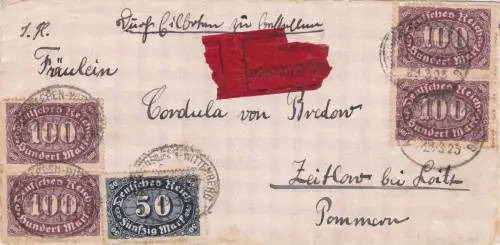 Durch Eilboten zu bestellen
Fräulein
Cordula von Bredow
Zeitlow bei Loitz
Pommern
Deutsches Reich
100
Hundert Mark
Deutsches Reich
100
Hundert Mark
23.3.23
Deutsches Reich
100
Hundert Mark
Deutsches Reich
100
Hundert Mark
Deutsches Reich
50
Fünfzig Mark